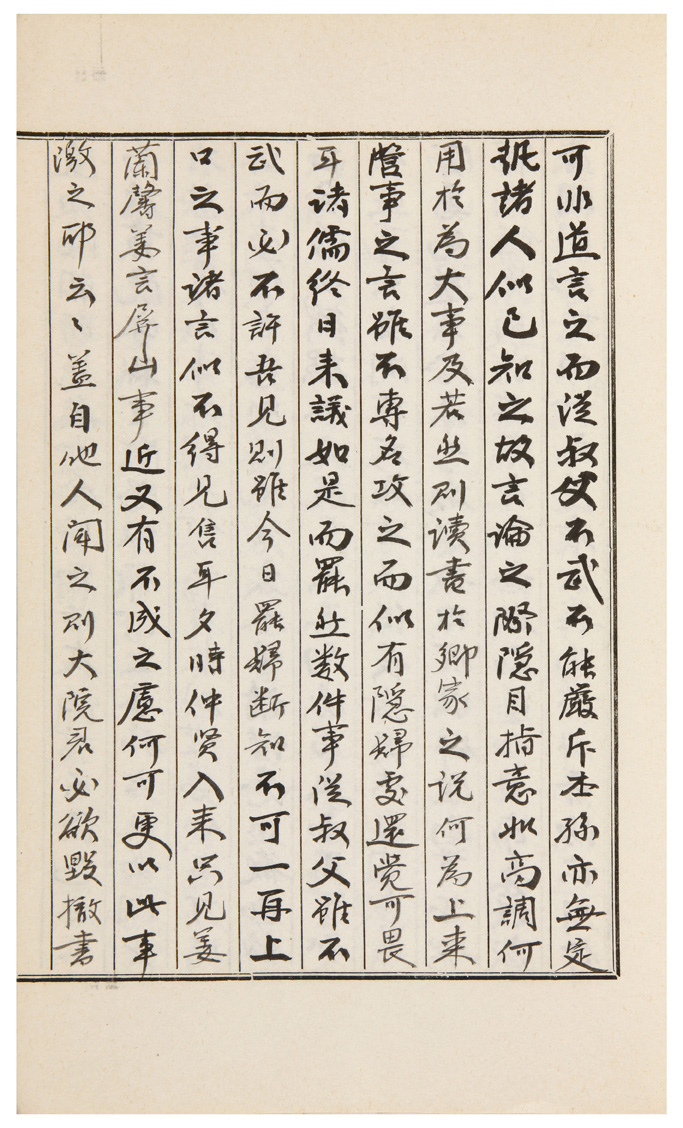 可以道言之而從叔父不武不能嚴斥本孫亦無定
執諸人似已知之故言論之際隱目指意此高調何
用於為大事及若此則讀書於鄉家之說何為上来
營事之言雖不專名攻之而似有隱歸處還覺可畏
耳諸儒終日来議如是而罷此数件事從叔父雖不
武而必不許吾見則雖今日罷歸断知不可一再上
口之事諸言似不得見售耳夕時仲賢入来只見姜
蘭馨姜言屏山事近又有不成之慮何可更以此事
激之耶云〻蓋自他人聞之則大院君必欲毀撤書